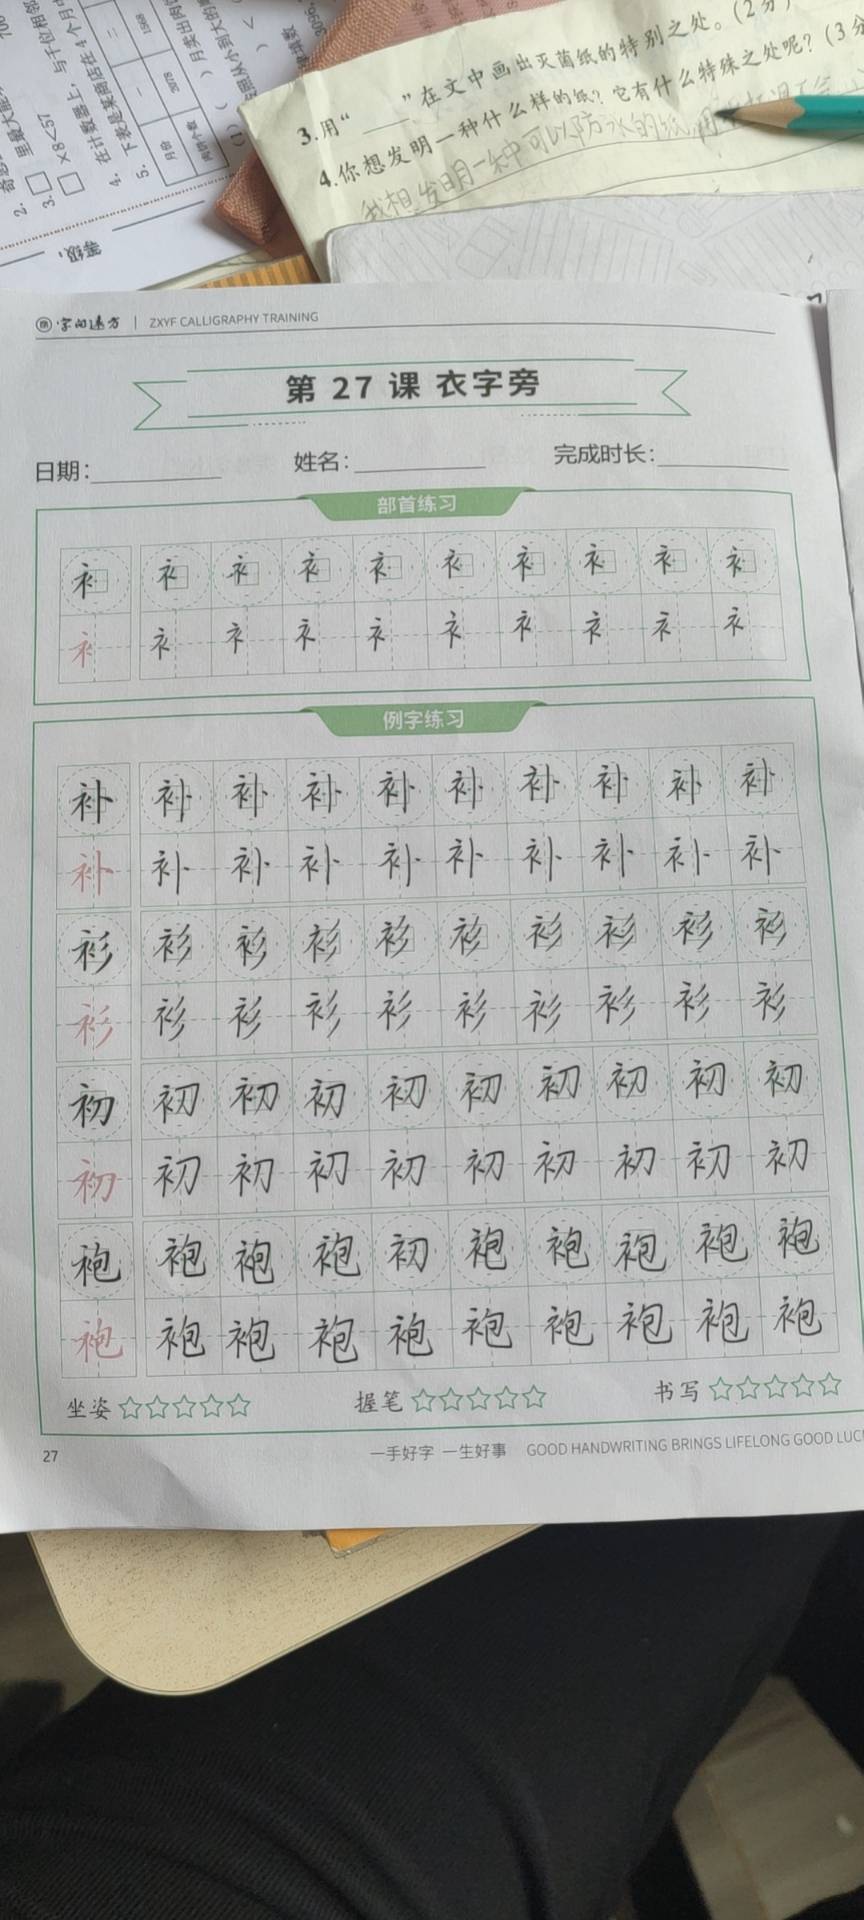 3.用“____”在文中画出灭菌纸的特别之处。(2分)
4.你想发明一种什么样的纸？它有什么特殊之处呢？(3分
我想发明一种可以防水的纸
2.
3.□×8<57
4.在计数器上,与千位相邻
5.下表是某商店在4个月中
月份 一 二
3978 1568
(1)( )月卖出肉
等级：
字向远方 | ZXYF CALLIGRAPHY TRAINING
第 27 课 衣字旁
日期： 姓名： 完成时长：
部首练习
衤 衤 衤 衤 衤 衤 衤 衤 衤 衤
衤 衤 衤 衤 衤 衤 衤 衤 衤 衤
例字练习
补 补 补 补 补 补 补 补 补 补
补 补 补 补 补 补 补 补 补 补
衫 衫 衫 衫 衫 衫 衫 衫 衫 衫
衫 衫 衫 衫 衫 衫 衫 衫 衫 衫
初 初 初 初 初 初 初 初 初 初
初 初 初 初 初 初 初 初 初 初
袍 袍 袍 袍 初 袍 袍 袍 袍 袍
袍 袍 袍 袍 袍 袍 袍 袍 袍 袍
坐姿 ☆☆☆☆☆ 握笔 ☆☆☆☆☆ 书写 ☆☆☆☆☆
27 一手好字 一生好事 GOOD HANDWRITING BRINGS LIFELONG GOOD LUC